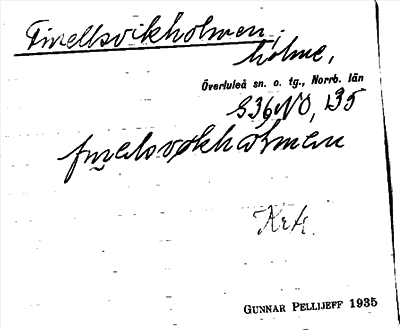 Finellsvikholmen,
holme,
Överluleå sn. o. tg., Norrb. län
S36NO, 135
Krt.
GUNNAR PELLIJEFF 1935